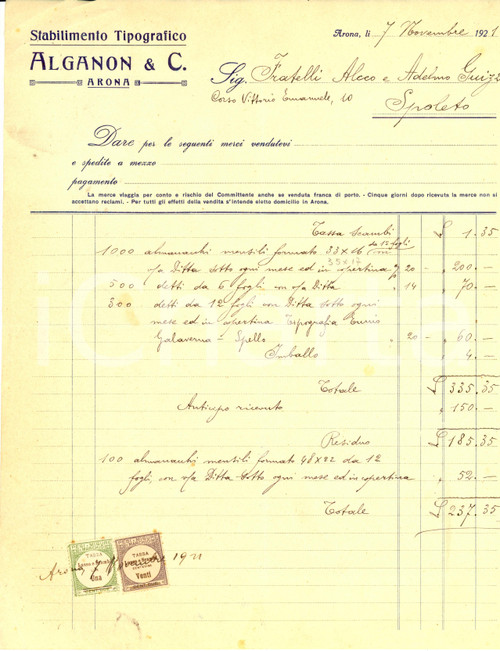 Stabilimento Tipografico
ALGANON & C.
ARONA
Arona, li 7 Novembre 1921
Sig. Fratelli Alceo e Adelmo Guizz
Corso Vittorio Emanuele, 10
Spoleto
Dare per le seguenti merci vendutevi
e spedite a mezzo
pagamento
La merce viaggia per conto e rischio del Committente anche se venduta franca di porto. - Cinque giorni dopo ricevuta la merce non si
accettano reclami. - Per tutti gli effetti della vendita s'intende eletto domicilio in Arona.
Tassa Scambi £ 1.35
1000 almanacchi mensili formato 33x16 da 12 fogli
35x17
c/a Ditta sotto ogni mese ed in copertina % 20 - „ 200. -
500 detti da 6 fogli c/a Ditta „ 14 „ 70. -
300 detti da 12 fogli con Ditta sotto ogni
mese ed in copertina Tipografia Ennio
Galaverna - Spello „ 20 - „ 60. -
Imballo „ 4. -
Totale £ 335.35
Anticipo ricevuto „ 150. -
Residuo £ 185.35
100 almanacchi mensili formato 48x22 da 12
fogli, con c/a Ditta sotto ogni mese ed in copertina „ 52. -
Totale £ 237.35
TASSA
Una
TASSA
Venti
Arona, 7 Novembre 1921